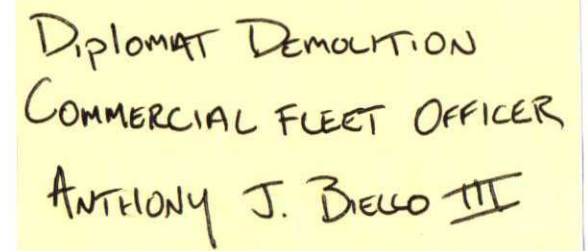 Diplomat Demolition
Commercial Fleet Officer
Anthony J. Biello III